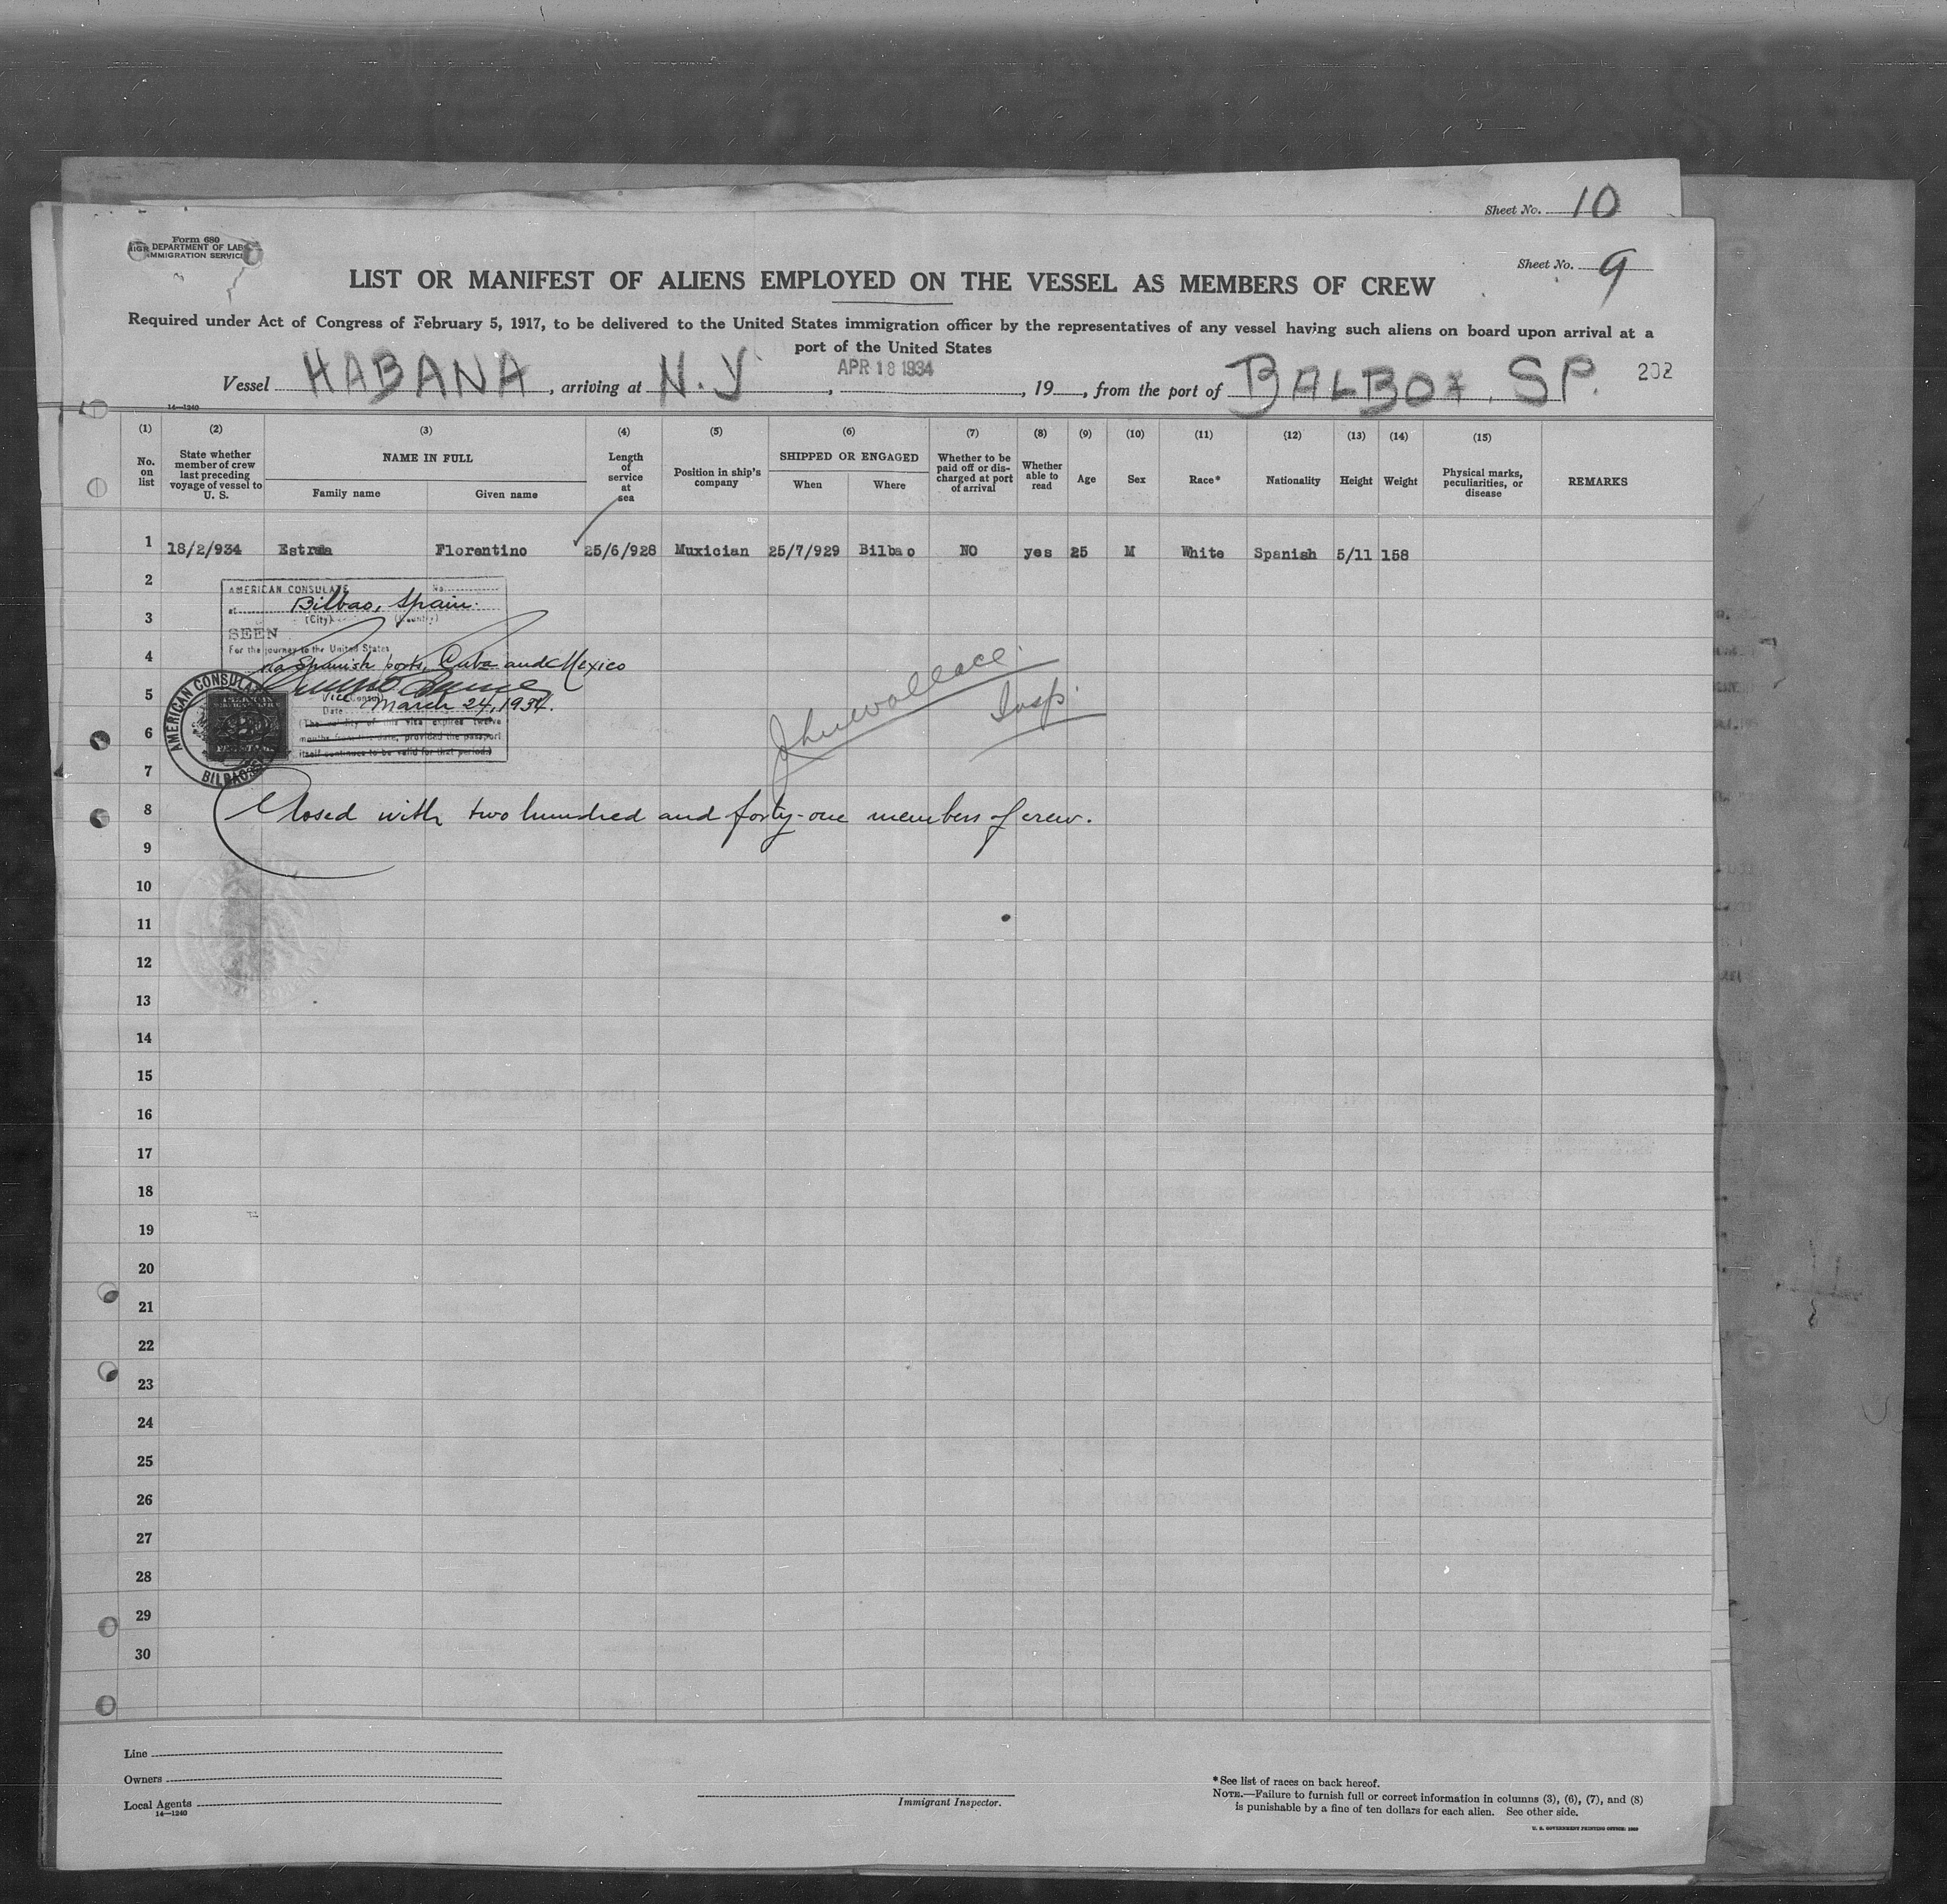 Sheet No. 10
Form 680
DEPARTMENT OF LAB
IMMIGRATION SERVICE
Sheet No. 9
LIST OR MANIFEST OF ALIENS EMPLOYED ON THE VESSEL AS MEMBERS OF CREW
Required under Act of Congress of February 5, 1917, to be delivered to the United States immigration officer by the representatives of any vessel having such aliens on board upon arrival at a
port of the United States
Vessel HABANA, arriving at N.Y, APR 18 1934, 19, from the port of BALBOA. SP. 202
14—1240
(1) (2) (3) (4) (5) (6) (7) (8) (9) (10) (11) (12) (13) (14) (15)
No. on list
State whether member of crew last preceding voyage of vessel to U. S.
NAME IN FULL
Family name
Given name
Length of service at sea
Position in ship's company
SHIPPED OR ENGAGED
When
Where
Whether to be paid off or discharged at port of arrival
Whether able to read
Age
Sex
Race*
Nationality
Height
Weight
Physical marks, peculiarities, or disease
REMARKS
1 18/2/934 Florentino 25/6/928 Muxician 25/7/929 Bilbao NO yes 25 M White Spanish 5/11 158
2
AMERICAN CONSULATE No.
at Bilbao, Spain.
3
(City) (Country)
SEEN
For the journey to the United States
4
via Spanish ports, Cuba and Mexico
5
Vice Consul
Date March 24, 1934.
(The validity of this visa expires twelve
6
months from this date, provided the passport
itself continues to be valid for that period.)
AMERICAN CONSULATE
BILBAO
John Wallace
Insp.
7
8 Closed with two hundred and forty-one members of crew.
9
10
11
12
13
14
15
16
17
18
19
20
21
22
23
24
25
26
27
28
29
30
Line
Owners
Local Agents
14—1240
Immigrant Inspector.
*See list of races on back hereof.
NOTE.—Failure to furnish full or correct information in columns (3), (6), (7), and (8)
is punishable by a fine of ten dollars for each alien. See other side.